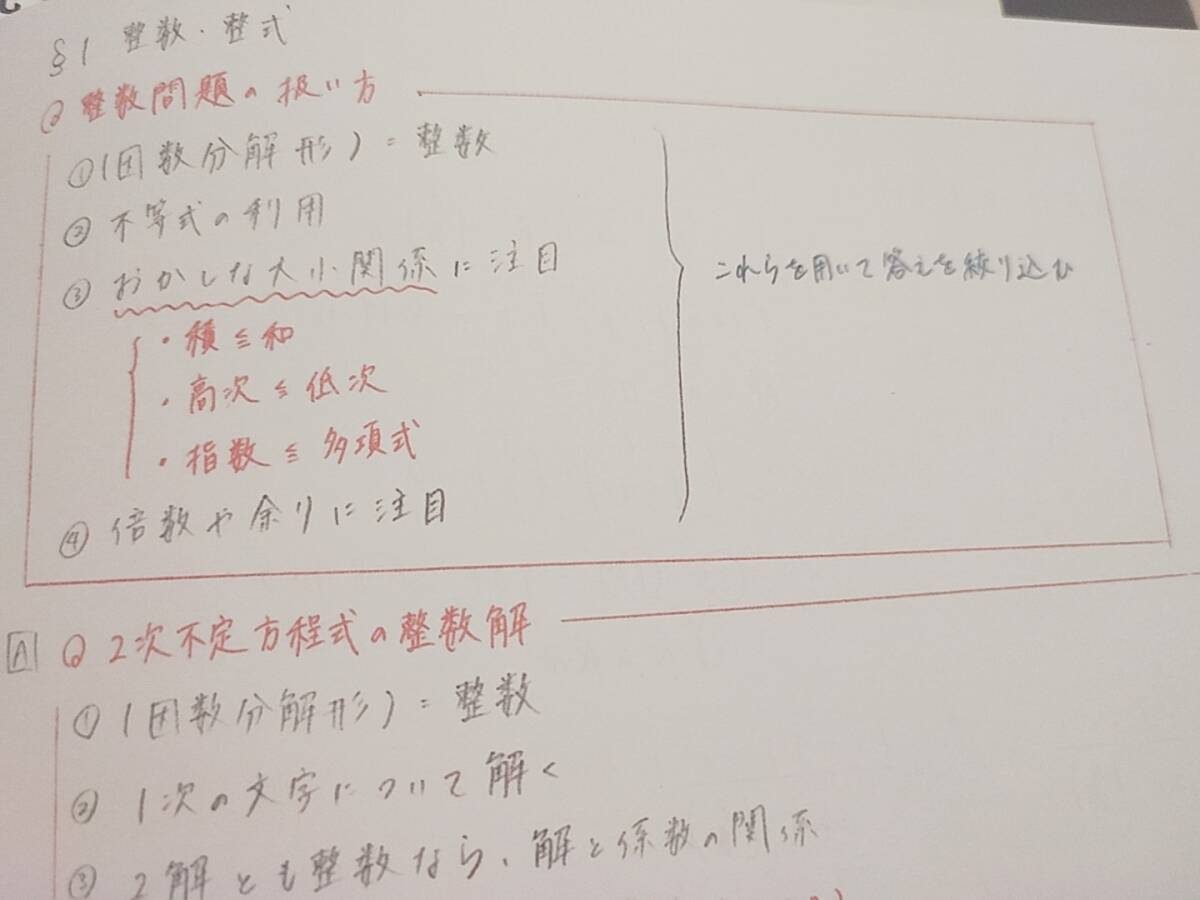 §1 整数・整式
◎ 整数問題の扱い方
① (因数分解形) = 整数
② 不等式の利用
③ おかしな大小関係に注目
・積 ≦ 和
・高次 ≦ 低次
・指数 ≦ 多項式
④ 倍数や余りに注目
これらを用いて答えを絞り込む
A ◎ 2次不定方程式の整数解
① (因数分解形) = 整数
② 1次の文字について解く
③ 2解とも整数なら、解と係数の関係